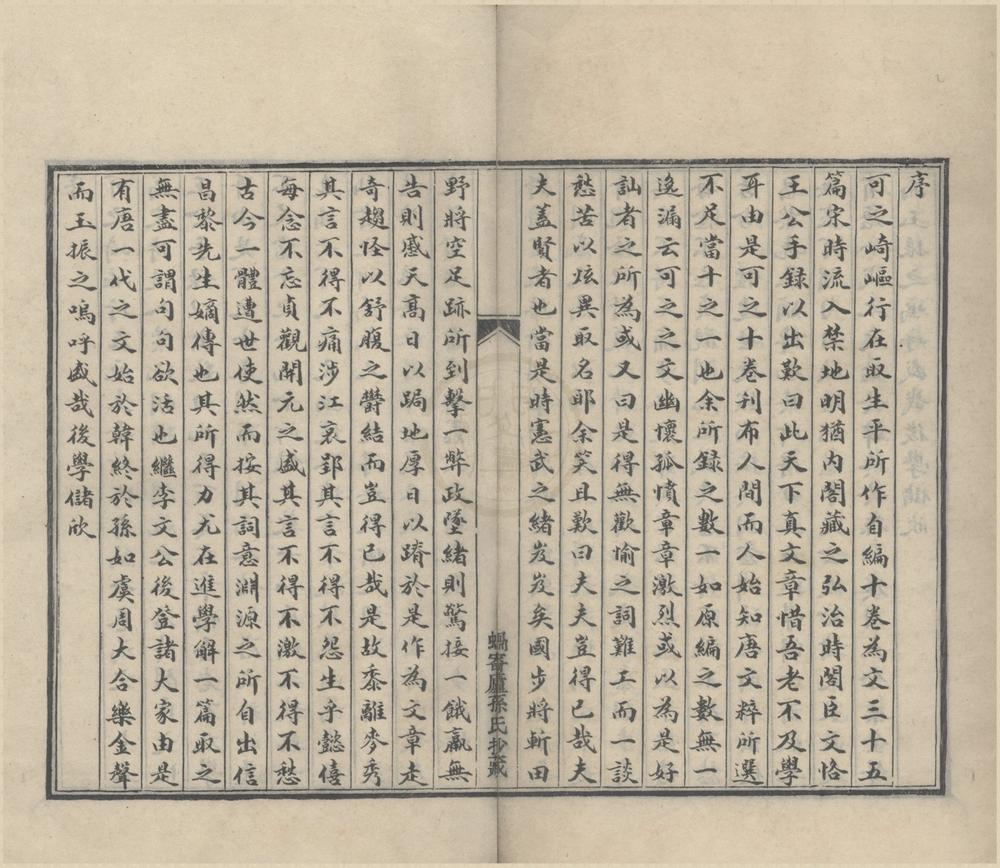 序
可之崎嶇行在取生平所作自編十卷為文三十五
篇宋時流入禁地明猶內閣藏之弘治時閣臣文恪
王公手錄以出歎曰此天下真文章惜吾老不及學
耳由是可之十卷刋布人間而人始知唐文粹所選
不足當十之一也余所録之數一如原編之數無一
逸漏云可之之文幽懷孤憤章章激烈或以為是好
訕者之所為或又曰是得無歡愉之詞難工而一談
愁苦以炫異取名耶余笑且歎曰夫夫豈得已哉夫
夫蓋賢者也當是時憲武之緒岌岌矣國步將斬田
蝸寄廬孫氏抄藏
野將空足跡所到擊一弊政墜緒則驚接一餓羸無
告則感天高日以跼地厚日以蹐於是作為文章走
奇趨怪以舒腹之欝結而豈得已哉是故黍離麥秀
其言不得不痛涉江哀郢其言不得不怨生乎懿僖
每念不忘貞觀開元之盛其言不得不激不得不愁
古今一體遭世使然而按其詞意淵源之所自出信
昌黎先生嫡傳也其所得力尤在進學解一篇取之
無盡可謂句句欲活也繼李文公後登諸大家由是
有唐一代之文始於韓終於孫如虞周大合樂金聲
而玉振之嗚呼盛哉後學儲欣